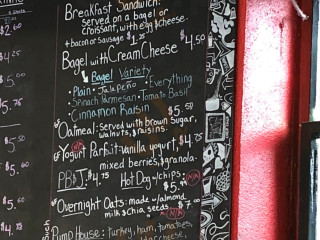 Breakfast Sandwich:
served on a bagel or
croissant, with egg & cheese
+ bacon or sausage $1.25
Bagel with Cream Cheese $4.50
Bagel Variety
• Plain • Jalapeño • Everything
• Spinach Parmesan • Tomato Basil
• Cinnamon Raisin $5.50
Oatmeal: served with brown sugar,
walnuts, & raisins.
Yogurt Parfait - vanilla yogurt, $4.75
mixed berries, & granola.
PB&J: $4.75 Hot Dog w/chips: $5.
Overnight Oats: made w/almond
milk & chia seeds. $7.00
Pump House: turkey, ham, tomatoes,
cheese,
$2.60
5.75
5.75
$5.
$6.50